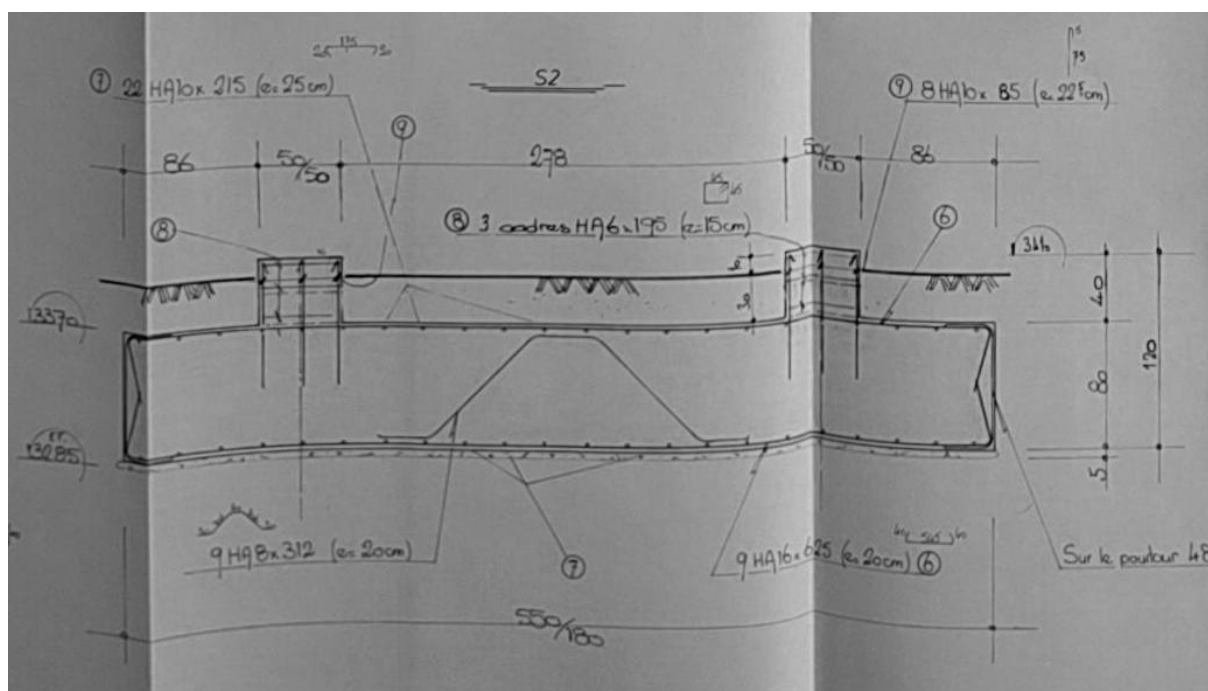 S2
135
⑦ 22 HA10 x 215 (e=25cm)
75
⑨ 8HA10 x 85 (e=22⁵cm)
⑨
86
50/50
278
50/50
86
⑧
⑧ 3 cadres HA6 x 195 (e=15cm)
⑥
3370
40
80
120
5
3285
9 HA8 x 312 (e=20cm)
⑦
9 HA16 x 625 (e=20cm) ⑥
Sur le pourtour 48
550/180